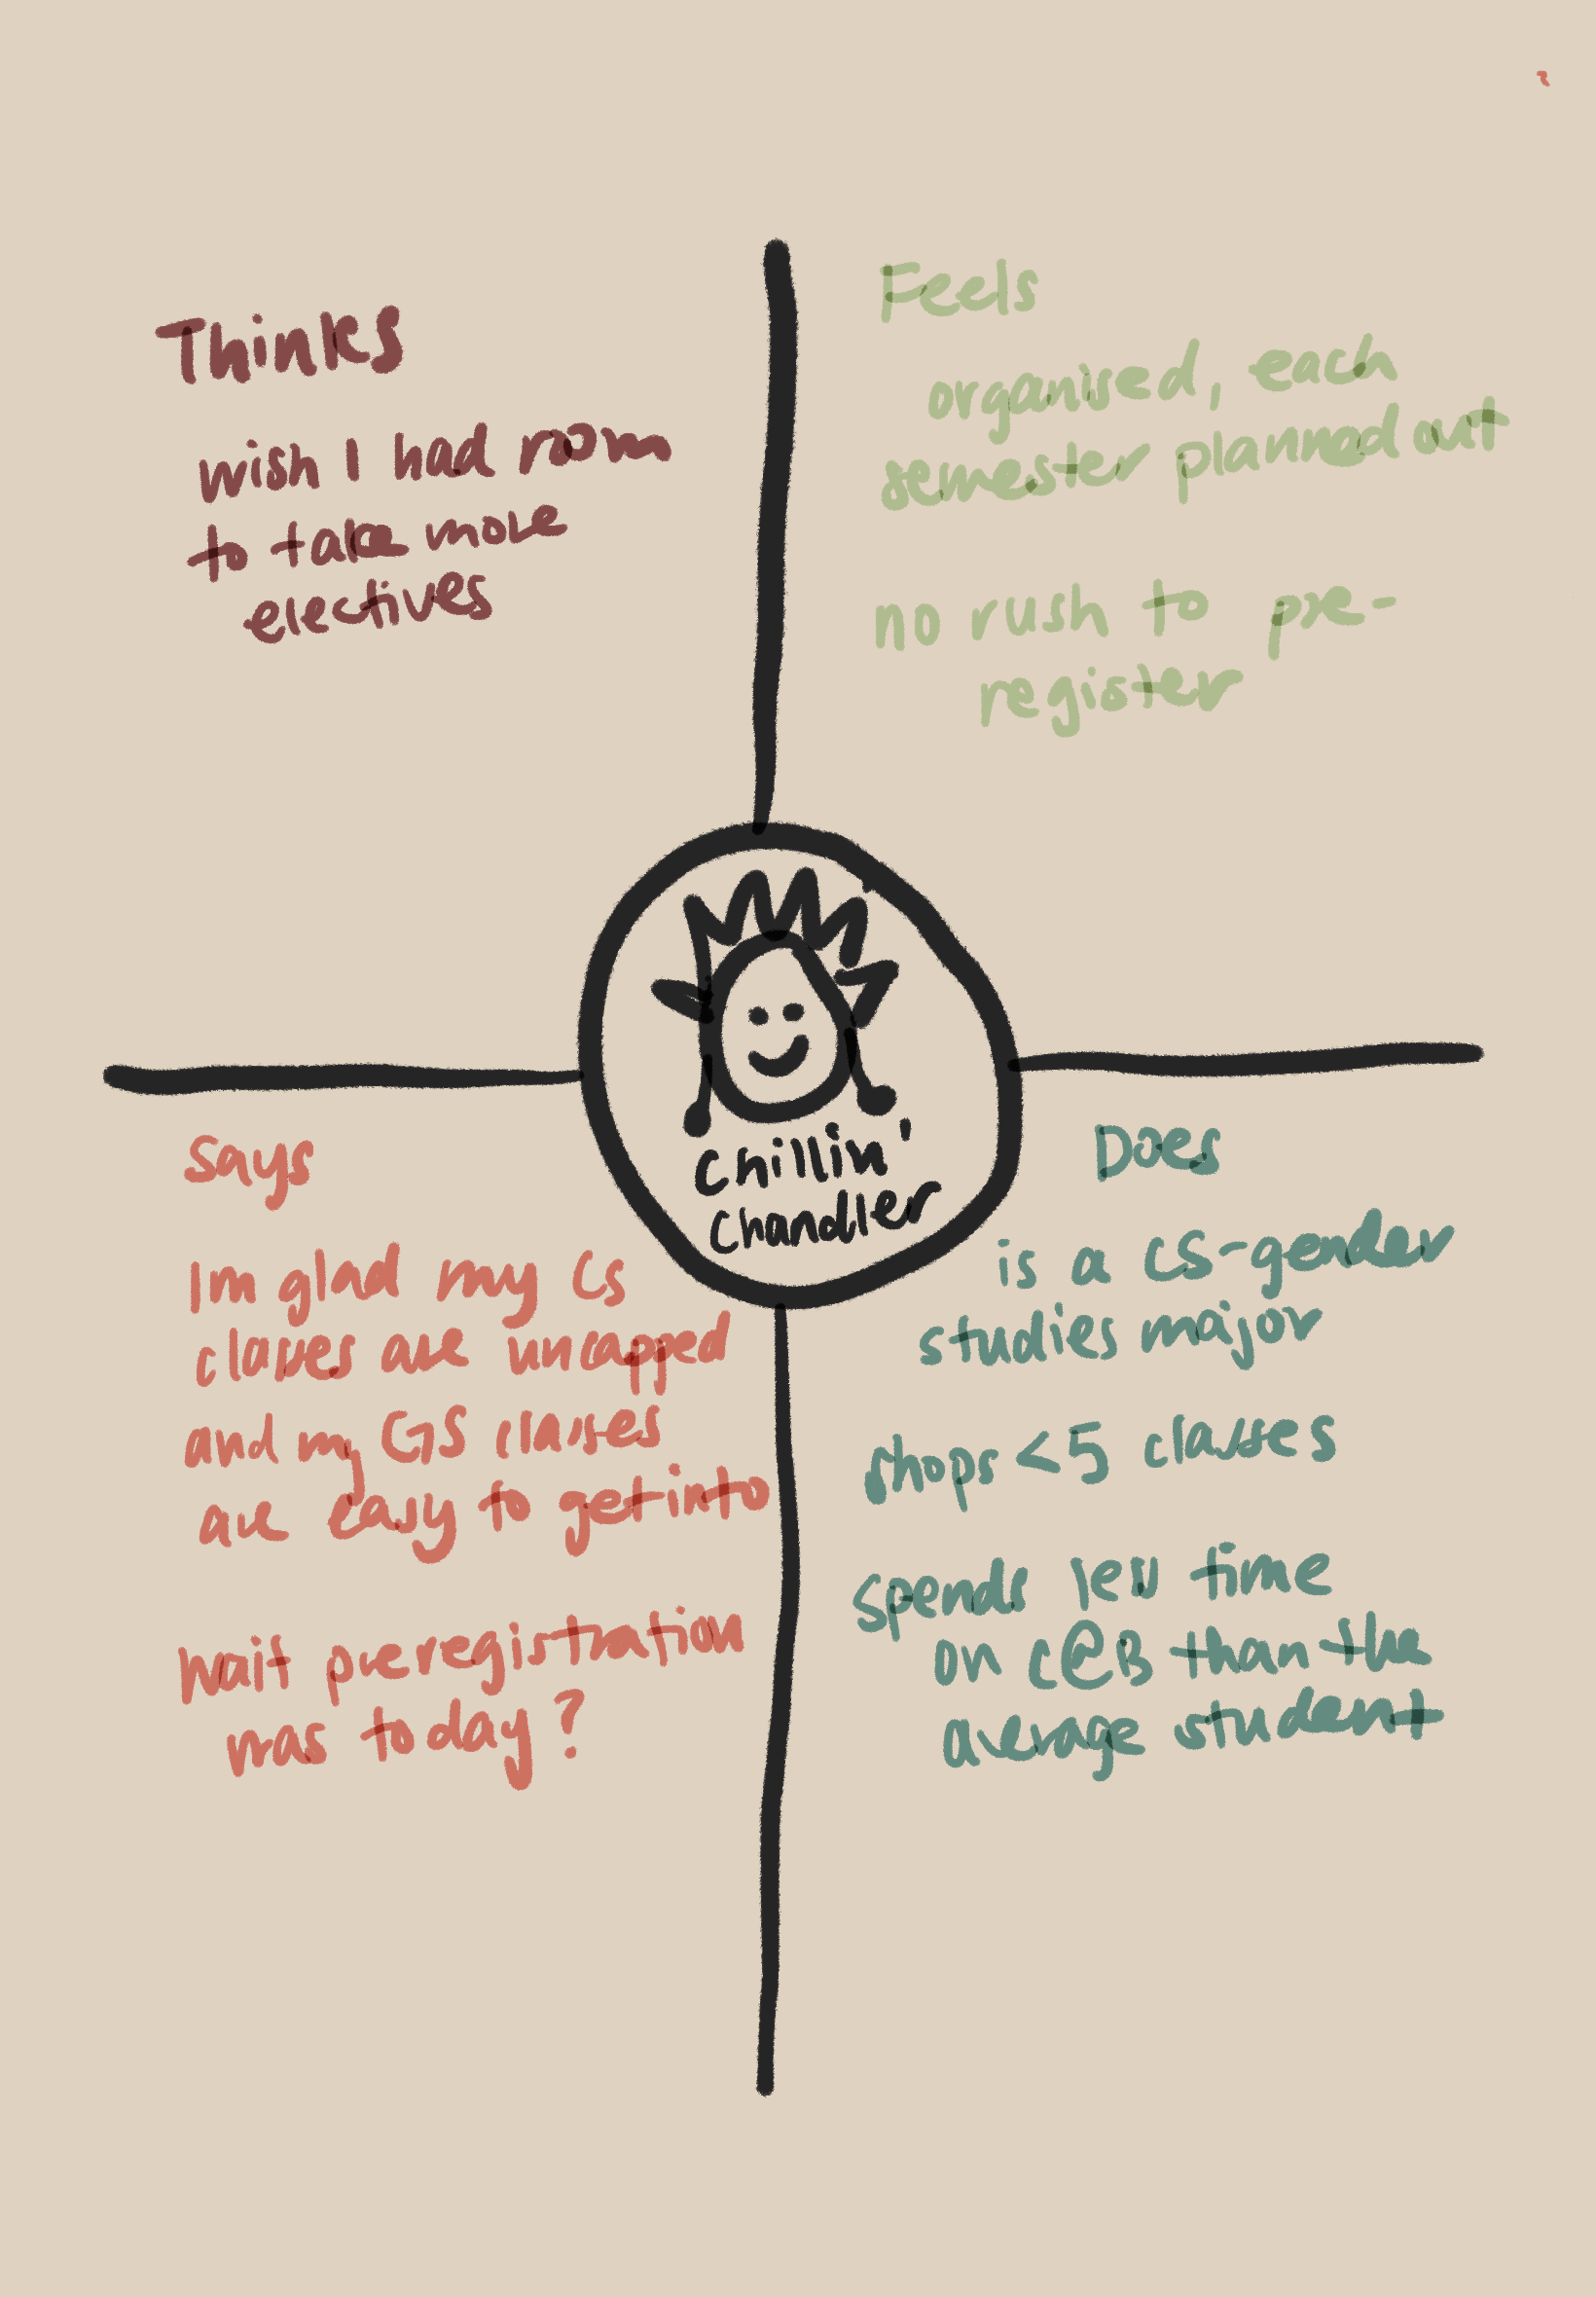 Thinks
wish I had room
to take more
electives
Feels
organised, each
semester planned out
no rush to pre-
register
Chillin'
Chandler
Says
Im glad my CS
classes are uncapped
and my GS classes
are easy to get into
Wait preregistration
was today?
Does
is a CS-gender
studies major
shops <5 classes
spends less time
on C@B than the
average student